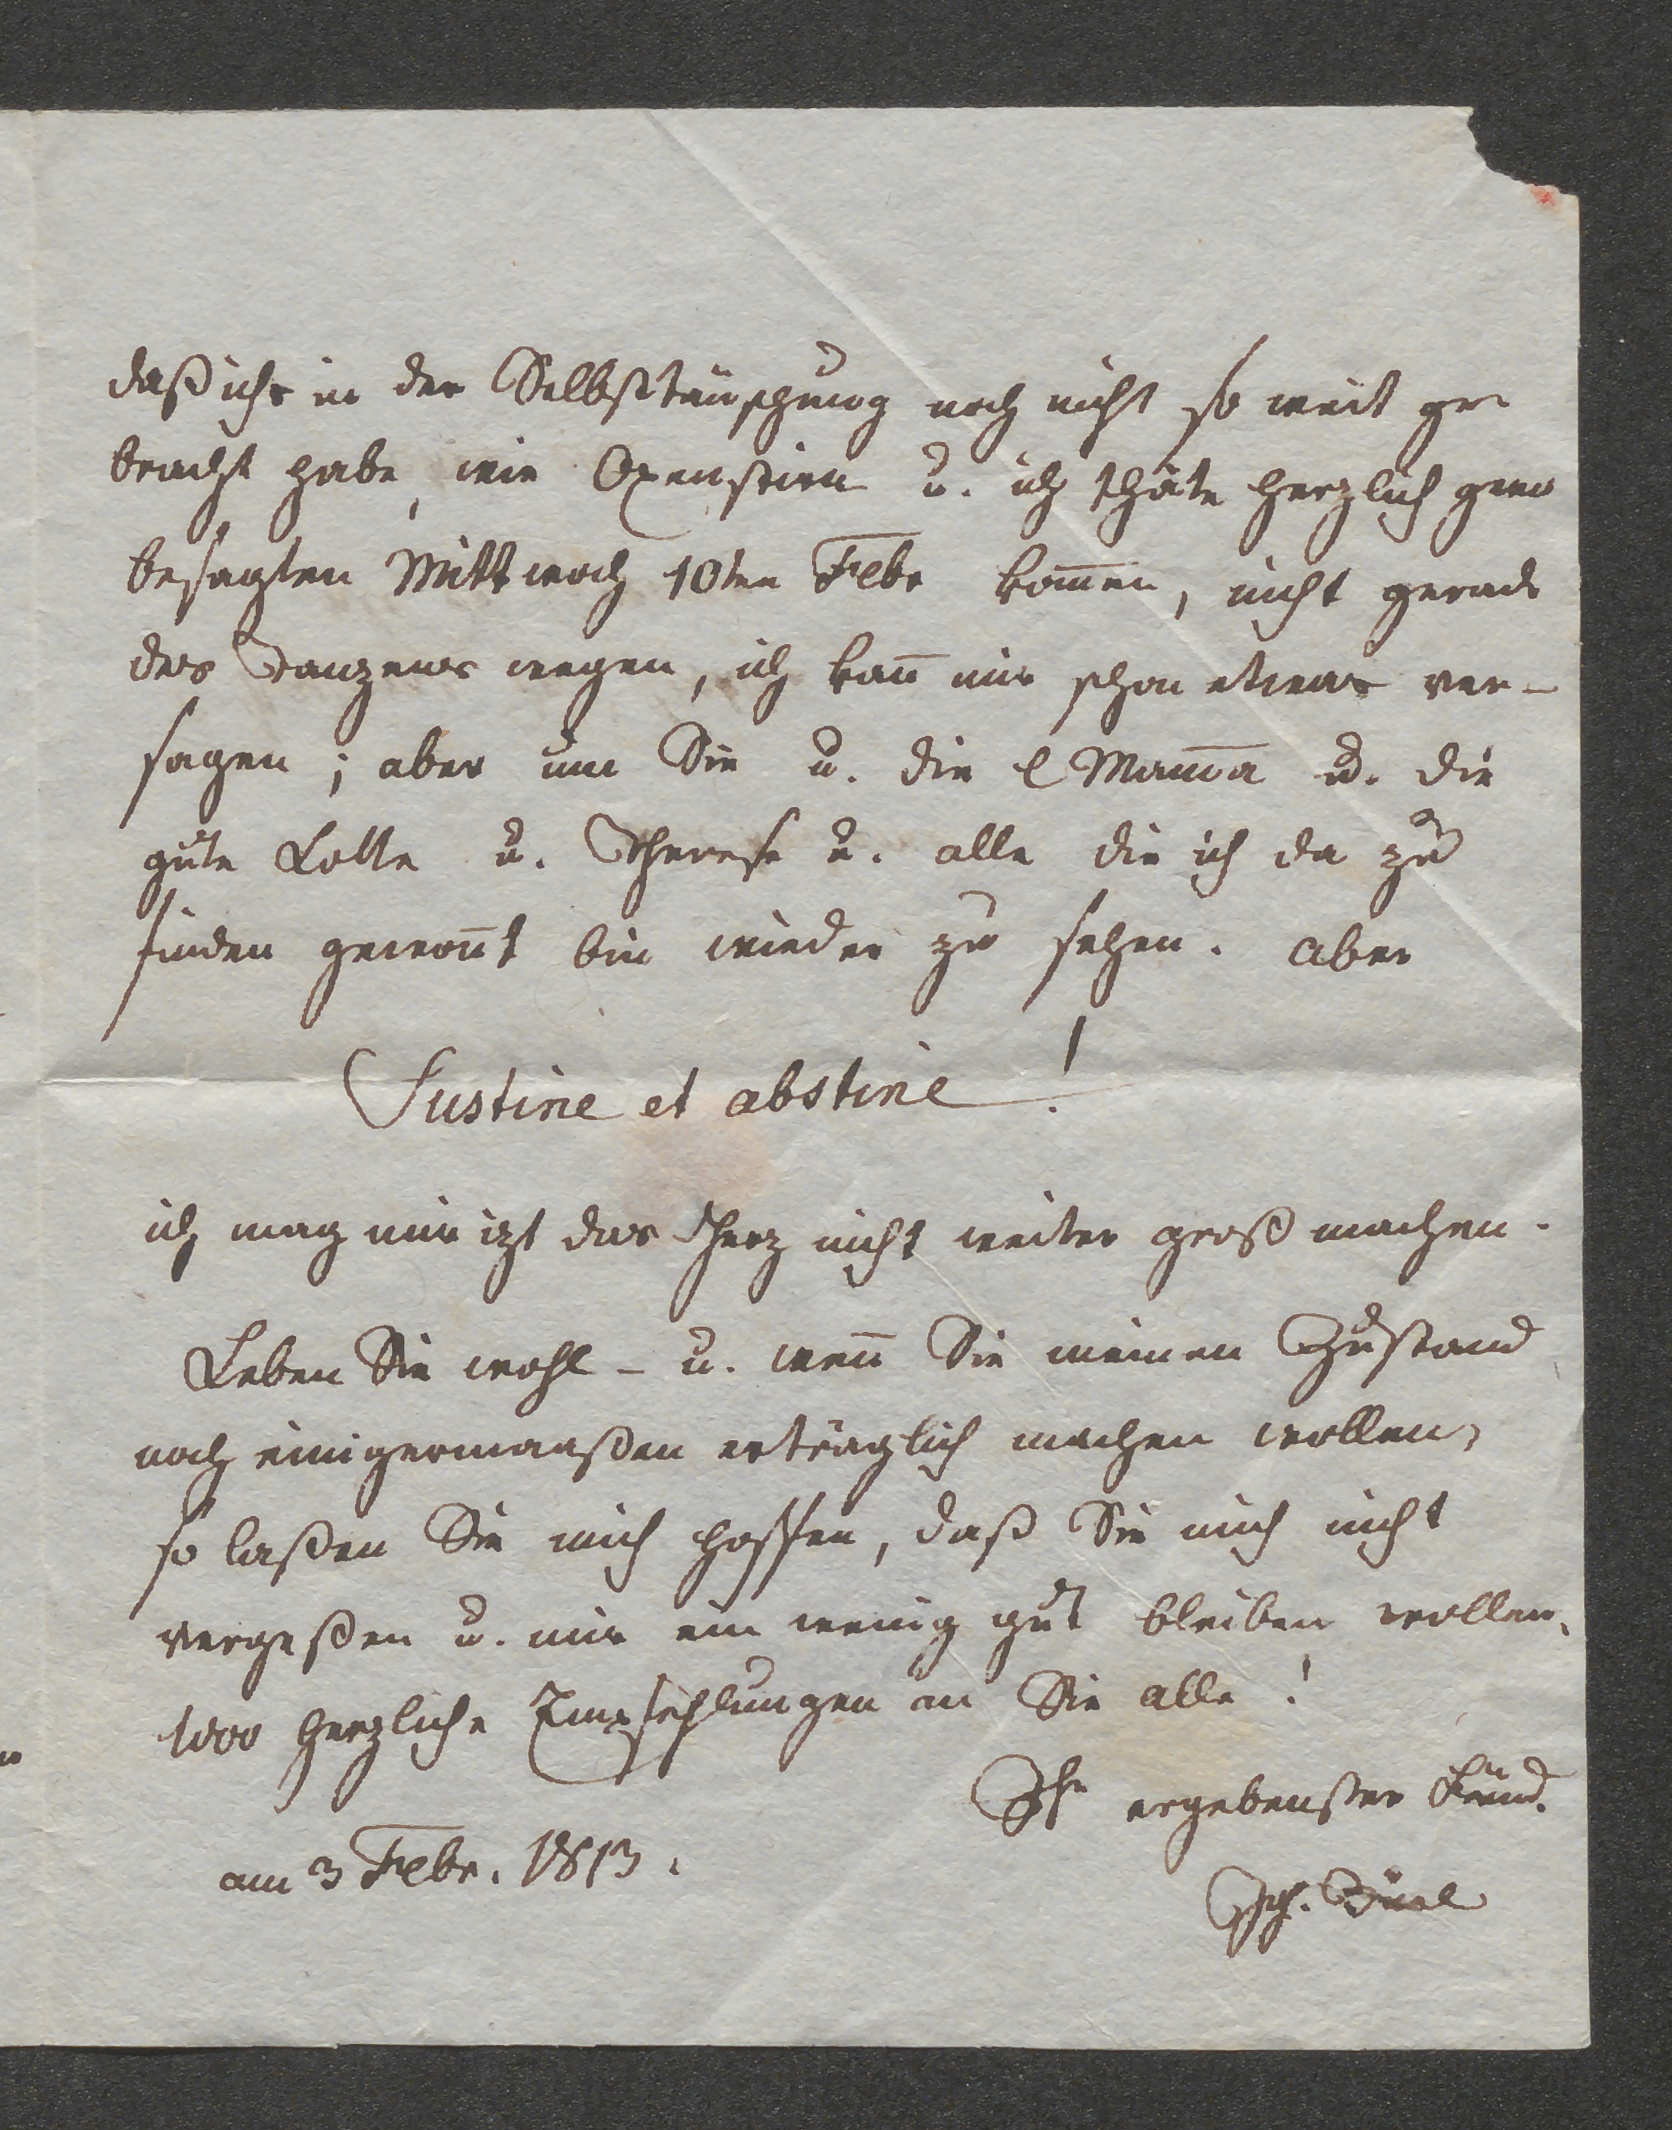 daß ichs in der Selbsttäuschung noch nicht so weit ge
bracht habe, wie Oxenstirn u. ich thäte herzlich gern
besagten Mittwoch 10ten Febr kom̄en, nicht gerade
des Tanzens wegen, ich kan̄ mir schon etwas ver-
sagen; aber um Sie u. die l Mam̄a u. die
gute Lotte u. Therese u. alle die ich da zu
finden gewon̄t bin wieder zu sehen. Aber
Sustine et abstine!
ich mag mir izt das Herz nicht weiter groß machen.
Leben Sie wohl – u. wen̄ Sie meinen Zustand
noch einigermaaßen erträglich machen wollen,
so laßen Sie mich hoffen, daß Sie mich nicht
vergeßen u. mir ein wenig gut bleiben wollen.
1000 herzliche Empfehlungen an Sie alle!
Ihr ergebenster Freund.
am 3 Febr. 1813.